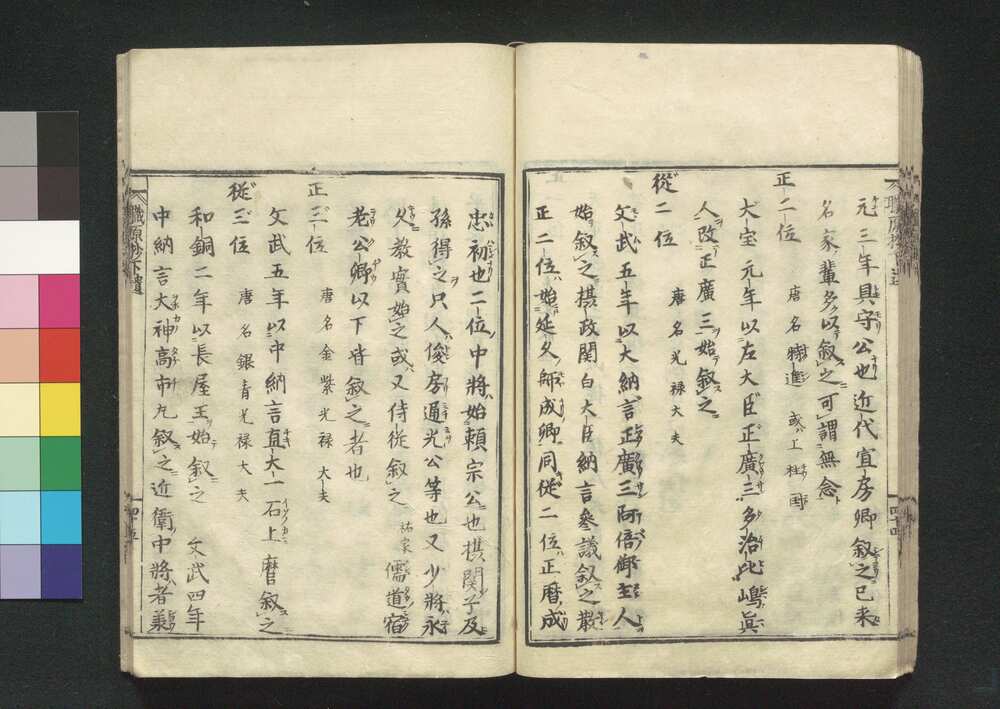 元三年具守公也近代宜房卿叙之已来
名家輩多以叙之可謂無念
正二位 唐名特進 或上柱国
大宝元年以左大臣正廣三多治比嶋眞
人改正廣三始叙之
従二位 唐名光禄大夫
文武五年以大納言正廣三阿倍御主人
始叙之摂政関白大臣納言参議叙之散
正二位始延久師成卿同従二位正暦成
忠初也二位中将始頼宗公也摂関子及
孫得之只人俊房通光公等也又少将永
久教實始之或又侍従叙之祐家儒道宿
老公卿以下皆叙之者也
正三位 唐名金紫光禄大夫
文武五年以中納言直大一石上麿叙之
従三位 唐名銀青光禄大夫
和銅二年以長屋王始叙之 文武四年
中納言大神高市丸叙之近衛中将者兼
職原抄下遺
四十五
四十四